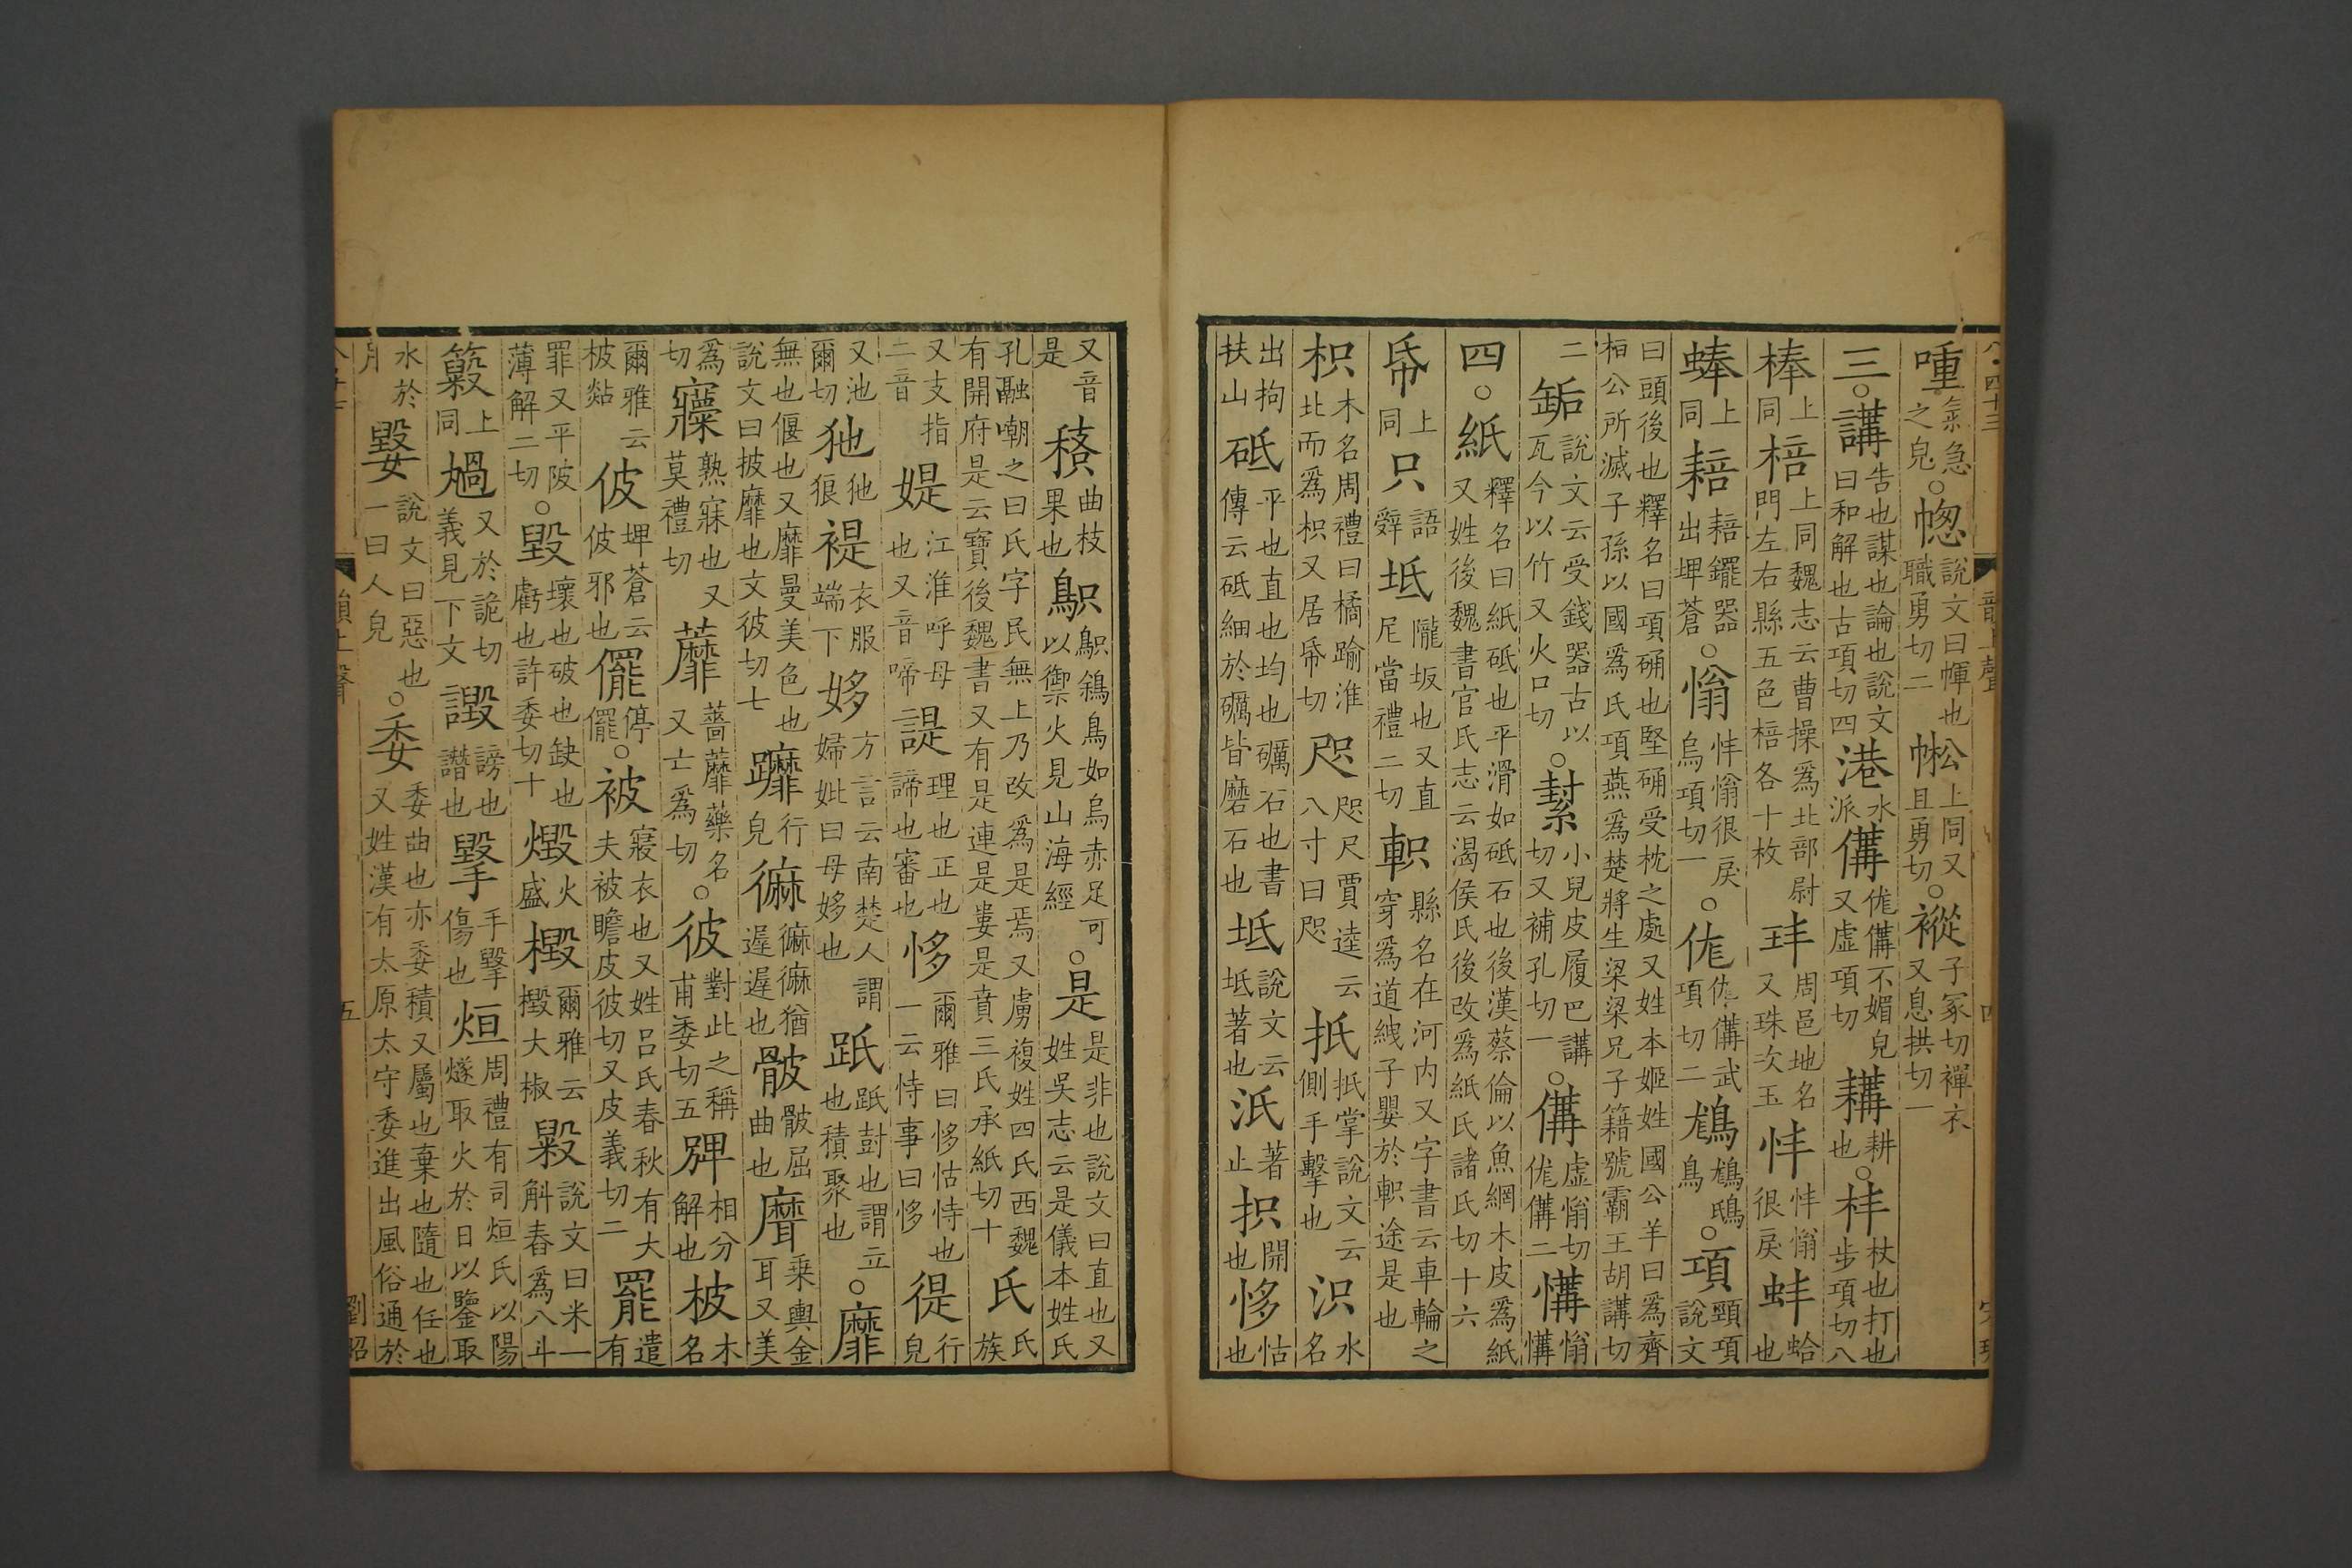 喠氣急之皃。幒説文曰幝也職勇切二 上同又且勇切。子冢切襌衣又息拱切一
三。講告也謀也論也説文曰和解也古項切四港水派傋㑨傋不媚皃又虛項切耩耕也。㭋杖也打也步項切八
棒上同棓上同魏志云曹操爲北部尉門左右縣五色棓各十枚玤周邑地名又珠次玉㤶㤶㦼很戾蚌蛤也
蜯上同䎧䎧䥯器出埤蒼。㦼㤶㦼很戾烏項切一。㑨㑨傋武項切二 鴟鳥。項頸項説文
曰頭後也釋名曰項确也堅确受枕之處又姓本姬姓國公羊曰爲齊桓公所滅子孫以國爲氏項燕爲楚將生梁梁兄子籍號霸王胡講切
二缿説文云受錢器古以瓦今以竹又火口切。䋽小兒皮履巴講切又補孔切一。傋虛㦼切㑨傋二
四。紙釋名曰紙砥也平滑如砥石也後漢蔡倫以魚網木皮爲紙又姓後魏書官氏志云渴侯氏後改爲紙氏諸氏切十六
帋上同只語辤坻隴坂也又直尼當禮二切軹縣名在河内又字書云車輪之穿爲道紲子嬰於軹途是也
枳木名周禮曰橘踰淮北而爲枳又居帋切咫咫尺賈逵云八寸曰咫抵抵掌説文云側手擊也 水名
出拘扶山砥平也直也均也礪石也書傳云砥細於礪皆磨石也坁説文云坁著也汦著止抧開也恀怙也
又音是 曲枝果也 鳥如烏赤足可以禦火見山海經。是是非也説文曰直也又姓吳志云是儀本姓氏
孔融嘲之曰氏字民無上乃改爲是焉又虜複姓四氏西魏有開府是云寶後魏書又有是連是婁是賁三氏承紙切十氏氏族
又支指二音媞江淮呼母也又音啼諟理也正也諦也審也恀爾雅曰恀怙恃也一云恃事曰恀徥行皃
又池爾切狏狏狼褆衣服端下姼方言云南楚人謂婦妣曰母姼也 也謂立也積聚也。靡
無也偃也又靡曼美色也説文曰披靡也文彼切七 行皃 猶遲遲也骳骳屈曲也 乗輿金耳又美
爲切 熟寐也又莫禮切蘼薔蘼藥名又亡爲切。彼對此之稱甫委切五 相分解也柀木名
爾雅云柀𪏭佊埤蒼云佊邪也㒈停㒈。被寢衣也又姓呂氏春秋有大夫被瞻皮彼切又皮義切二罷遣有
罪又平陂薄解二切。毀壞也破也缺也虧也許委切十燬火盛檓爾雅云檓大椒毇説文曰米一斛舂爲八斗
上同 又於詭切義見下文譭謗也譖也 手毀傷也烜周禮有司烜氏以陽燧取火於日以鑒取
水於月 説文曰惡也一曰人皃。委委曲也亦委積又屬也棄也隨也任也又姓漢有太原太守委進出風俗通於
五
劉昭